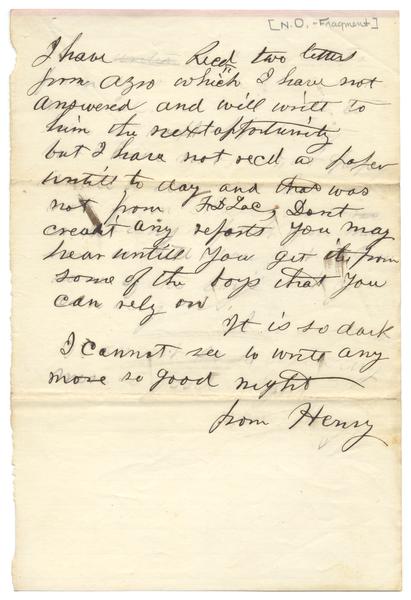 [N.D. - Fragment]
I have Recd two letters
from Azro which I have not
answered and will write to
him the next opportunity
but I have not recd a paper
untill to day and that was
not from F D Lac, Dont
credit any reports you may
hear untill you get it from
some of the boys that you
can rely on
It is so dark
I cannot see to write any
more so good night
from Henry